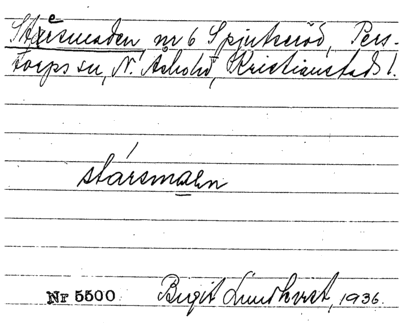 Stärsmaden, nr 6 Spjutseröd, Pers-
torps sn, N. Åsbo hd, Kristianstads l.
stársmaen
Nr 5500 Birgit Lundkvist, 1936.